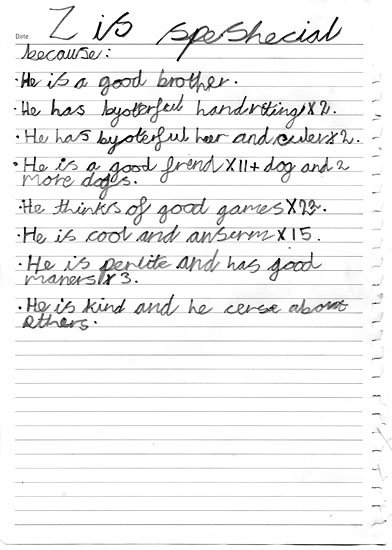 Z is speshecial
Date:
because:
·He is a good brother.
·He has byoterfeul handrtting X2.
·He has byoterful heer and culer x2.
·He is a good frend X11+ dog and 2
more dogs.
·He thinks of good games X22.
·He is cool and anserm X15.
·He is perlite and has good
maners X3.
·He is kind and he cerse about
others.